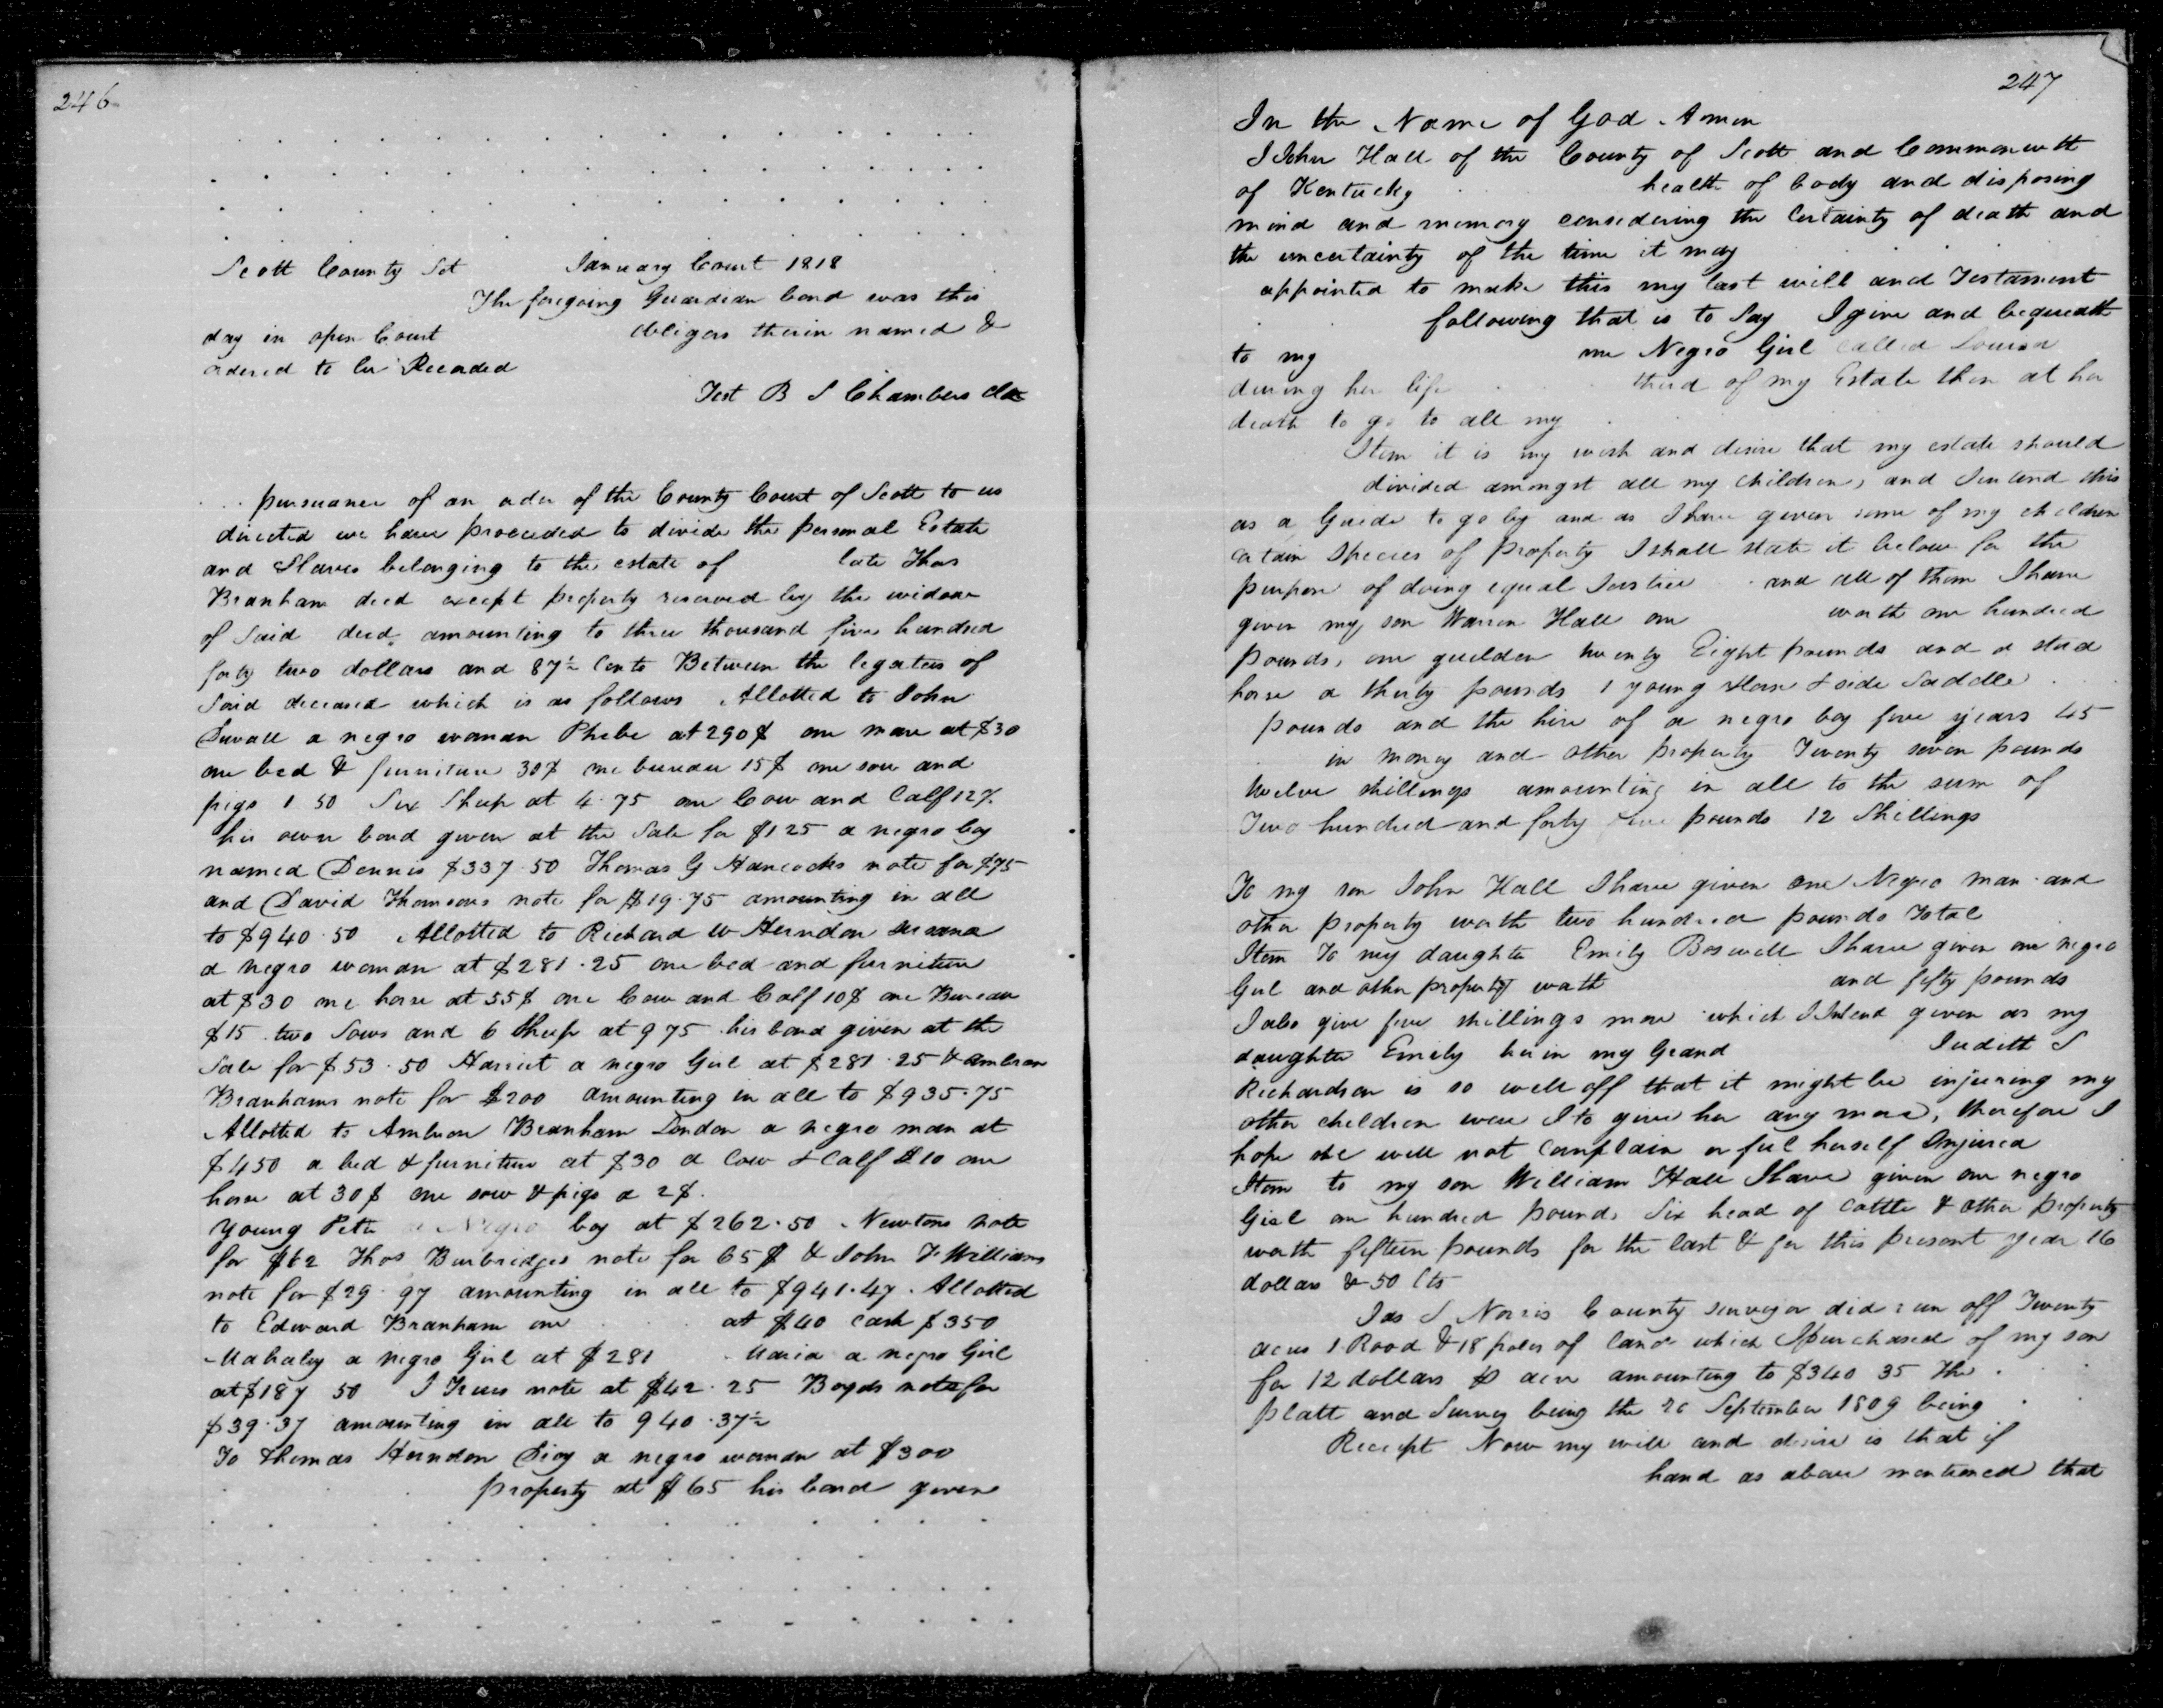 246
Scott County Sct January Court 1818
The foregoing Guardian bond was this
day in open Court obligors therein named &
ordered to be Recorded
Test B S Chambers clk
pursuance of an order of the County Court of Scott to us
directed we have proceeded to divide the personal Estate
and Slaves belonging to the estate of late Thos
Branham decd except property reserved by the widow
of Said decd amounting to three thousand five hundred
forty two dollars and 87½ Cents Between the legatees of
Said deceased which is as follows Allotted to John
Duvall a negro woman Phebe at 290$ one mare at $30
one bed & furniture 30$ one bureau 15$ one sow and
pigs 1 50 Six Sheep at 4.75 one Cow and Calf 12$
his own bond given at the Sale for $125 a negro boy
named Dennis $337.50 Thomas G Hancocks note for $75
and David Thomsons note for $19.75 amounting in all
to $940.50 Allotted to Richard W Herndon
a negro woman at $281.25 one bed and furniture
at $30 one horse at 55$ one Cow and Calf 10$ one Bureau
$15 two Sows and 6 Sheep at 9 75 his bond given at the
Sale for $53.50 Harriet a negro Girl at $281.25 & Ambrose
Branhams note for $200 amounting in all to $935.75
Allotted to Ambrose Branham London a negro man at
$450 a bed & furniture at $30 a Cow & Calf $10 one
horse at 30$ one sow & pigs a 2$.
Young Peter a Negro boy at $262.50 Newtons note
for $62 Thos Burbridges note for 65$ & John F Williams
note for $29.97 amounting in all to $941.47. Allotted
to Edward Branham one at $40 cash $350
Mahaley a negro Girl at $281 Maria a negro Girl
at $187 50 J note at $42.25 Boyds note for
$39.37 amounting in all to 940.37½
To Thomas Herndon a negro woman at $300
property at $65 his bond given
247
In the Name of God Amen
I John Hall of the County of Scott and Commonwth
of Kentucky health of body and disposing
mind and memory considering the Certainty of death and
the uncertainty of the time it may
appointed to make this my last will and Testament
following that is to Say I give and bequeath
to my one Negro Girl called Louisa
during her life third of my Estate then at her
death to go to all my
Item it is my wish and desire that my estate should
divided amongst all my children, and Intend this
as a Guide to go by and as I have given some of my children
certain Species of property I shall state it below for the
purpose of doing equal Justice and all of them I have
given my son Warren Hall one worth one hundred
pounds, one guelden twenty Eight pounds and a stud
horse a thirty pounds 1 young Horse & side Saddle
pounds and the hire of a negro boy five years 45
in money and other property Twenty seven pounds
twelve shillings amounting in all to the sum of
Two hundred and forty five pounds 12 Shillings
To my son John Hall I have given one Negro man and
other property worth two hundred pounds Total
Item To my daughter Emily Boswell I have given one negro
Girl and other property worth and fifty pounds
I also give five shillings more which I Intend given as my
daughter Emily her in my Grand Judith S
Richardson is so well off that it might be injuring my
other children were I to give her any more, therefore I
hope she will not Complain or feel herself Injured
Item to my son William Hall I have given one negro
Girl one hundred pounds Six head of Cattle & other property
worth fifteen pounds for the last & for this present year 16
dollars & 50 Cts
Jas S Norris County Surveyor did run off Twenty
acres 1 Rood & 18 poles of land which I purchased of my son
for 12 dollars p acre amounting to $340 35 the
platt and Survey being the 26 September 1809 being
Receipt Now my will and desire is that if
hand as above mentioned that